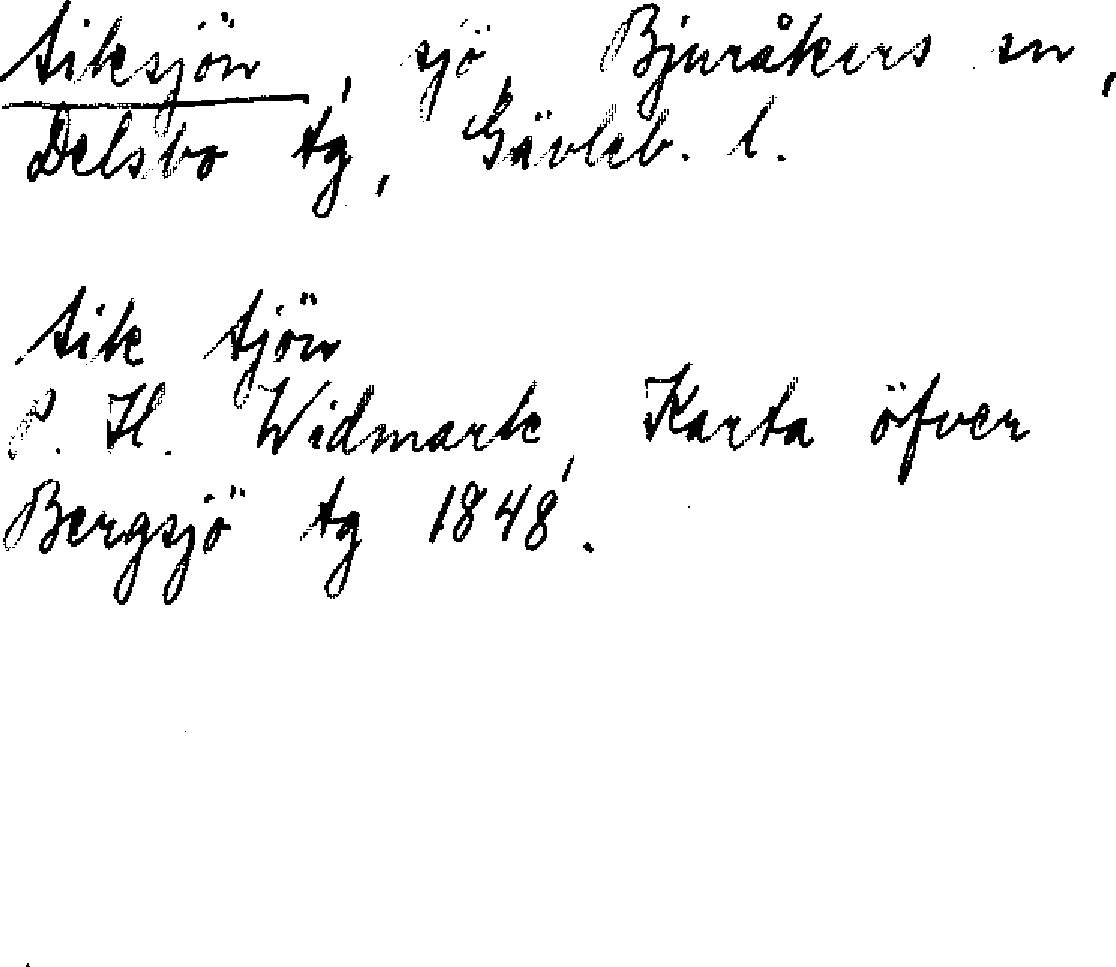 Siksjön, sjö, Bjuråkers sn,
Delsbo tg, Gävleb. l.
Sik tjön
P. H. Widmark, Karta öfver
Bergsjö tg 1848.